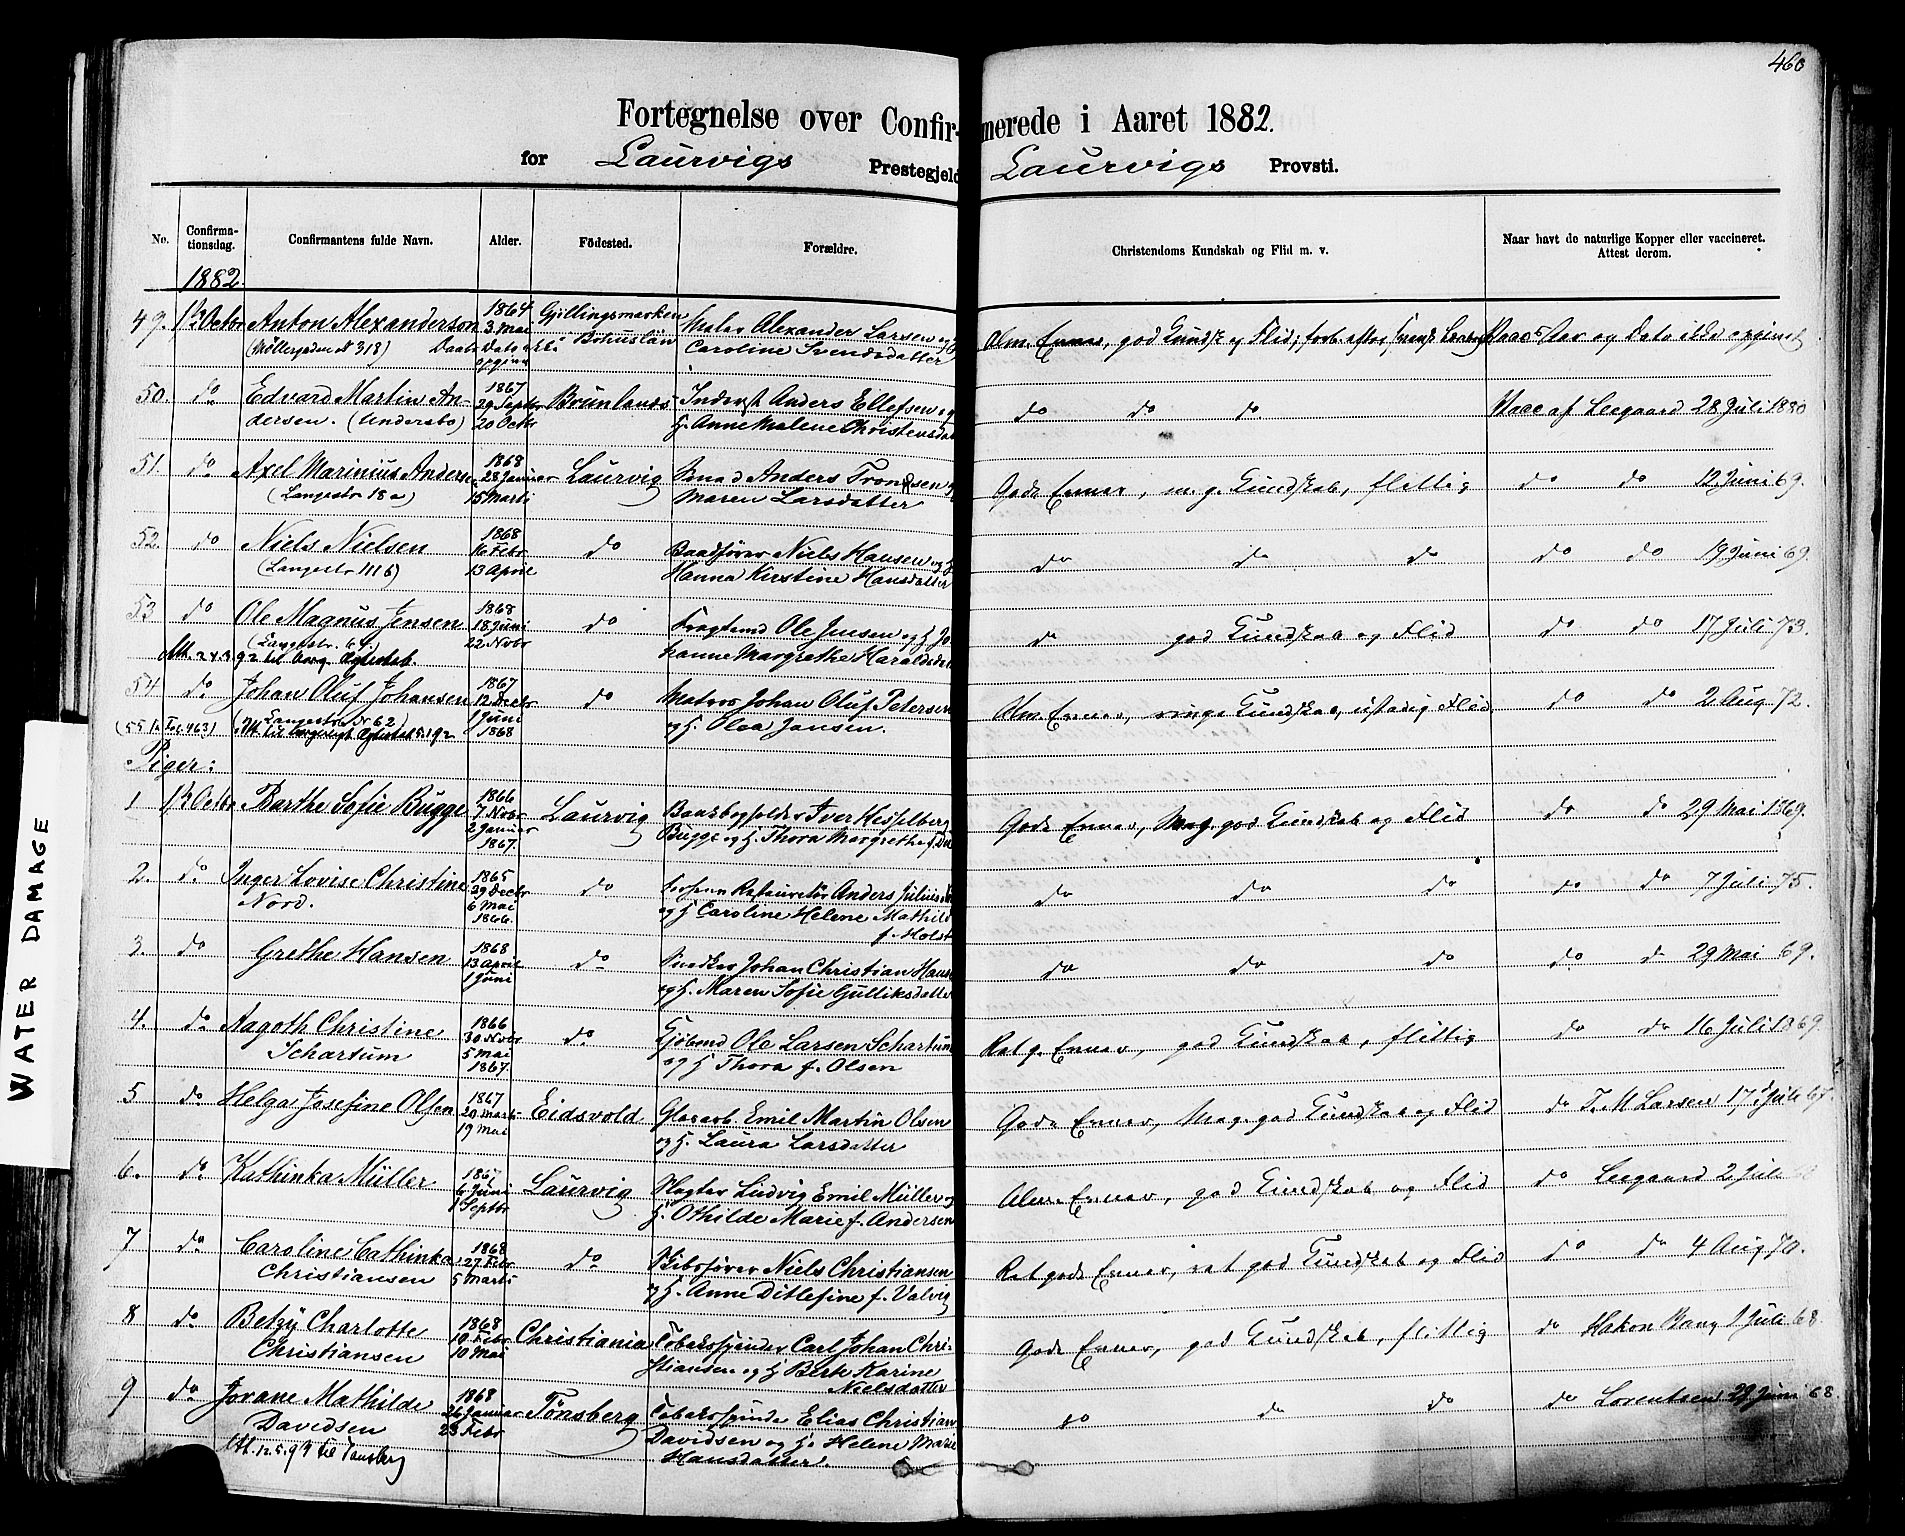 460
Fortegnelse over Confirmerede i Aaret 1882.
for Laurvigs Prestegjeld Laurvigs Provsti.
No. Confirmationsdag. Confirmantens fulde Navn. Alder. Födested. Forældre. Christendoms Kundskab og Flid m. v. Naar havt de naturlige Kopper eller vaccineret. Attest derom.
1882
49. Octbr Anton Alexanderson 1864 3 Mai Gjillingsmarken Bohuslän Alexander Larsen og
Caroline Svendsdatter
Alm. Evner, god Kundsk og Flid;
50. do Edvard Martin An- 1867 29 Septbr Brunlanes Inderst Anders Ellefsen og
dersen. (Undersbo) 20 Octbr h. Anne Malene Christensdat
do do do Vacc af Leegaard 28 Juli 1880
51. do Axel Marinius Anders 1868 28 Januar Laurvig Smed Anders Trondsen og
(Langestr 18a) 15 Marts Maren Larsdatter
Gode Evner, m. g. Kundskab, flittig do do 12 Juni 69.
52. do Niels Nielsen 1868 16 Febr do Baadfører Niels Hansen og h
(Langestr 111b) 13 April Hanna Kirstine Hansdatter
do do do do do 19 Juni 69.
53 do Ole Magnus Jensen 1868 18 Juni do Fragtemd Ole Jensen og h Jo
(Langestr. 64) 22 Novbr hanne Margrethe Haraldsdat
do god Kundskab og Flid do do 17 Juli 73.
54 do Johan Oluf Johansen 1867 12 Decbr do Matros Johan Oluf Petersen
(Langestr. Nr 62) 1 Juni 1868 og h. Olva Jansen.
Alm. Evner, ringe Kundskab, ustadig Flid do do 2 Aug 72.
(55 se Fol 463)
Piger:
1 Octbr Barthe Sofie Bugge 1866 7 Novbr Laurvig Iver Hesselberg
2 Januar 1867. Bugge og h. Thora Margrethe f. Du
Gode Evner, Meg. god Kundskab og Flid do do 29 Mai 1869.
2. do Inger Lovise Christine 1865 29 Decbr do Anders Julius
Nord. 6 Mai 1866. og h Caroline Helene Mathild
f. Holst
do do do do do 7 Juli 75.
3. do Grethe Hansen 1868 13 April do Snedker Johan Christian Hans
1 Juni og h. Maren Sofie Gulliksdatte
do do do do do 29 Mai 69.
4. do Aagoth Christine 1866 30 Novbr do Kjöbmd Ole Larsen Schartum
Schartum 5 Mai 1867. og h Thora f. Olsen
Ret g. Evner, god Kundskab, flittig do do 16 Juli 1869
5 do Helga Josefine Olsen 1867 20 Marts Eidsvold Glasarb. Emil Martin Olsen
19 Mai og h. Laura Larsdatter
Gode Evner, Meg. god Kundskab og Flid do T. M Larsen 17 Juli 67.
6. do Kathinka Müller 1867 6 Juni Laurvig Slagter Ludvig Emil Müller og
1 Septbr h. Othilde Marie f. Andersen
Alm Evner, god Kundskab og Flid do Leegaard 2 Juli
7 do Caroline Cathinka 1868 27 Febr do Skibsfører Niels Christiansen
Christiansen 5 Marts og h. Anne Ditlefine f. Valvig
Ret gode Evner, ret god Kundskab og Flid do do 4 Aug 70.
8 do Betzy Charlotte 1868 19 Febr Christiania Tobaksspinder Carl Johan Chri-
Christiansen 10 Mai stiansen og h Berte Karine
Nielsdatter
Gode Evner, god Kundskab, flittig do Hakon Bang 1 Juli 68.
9 do Jovane Mathilde 1868 26 Januar Tönsberg Tobaksspinder Elias Christian
Davidsen 23 Febr Davidsen og h. Helene Marie
Hansdatter.
do do do do Lorentsen 29 Juni 68.
WATER DAMAGE